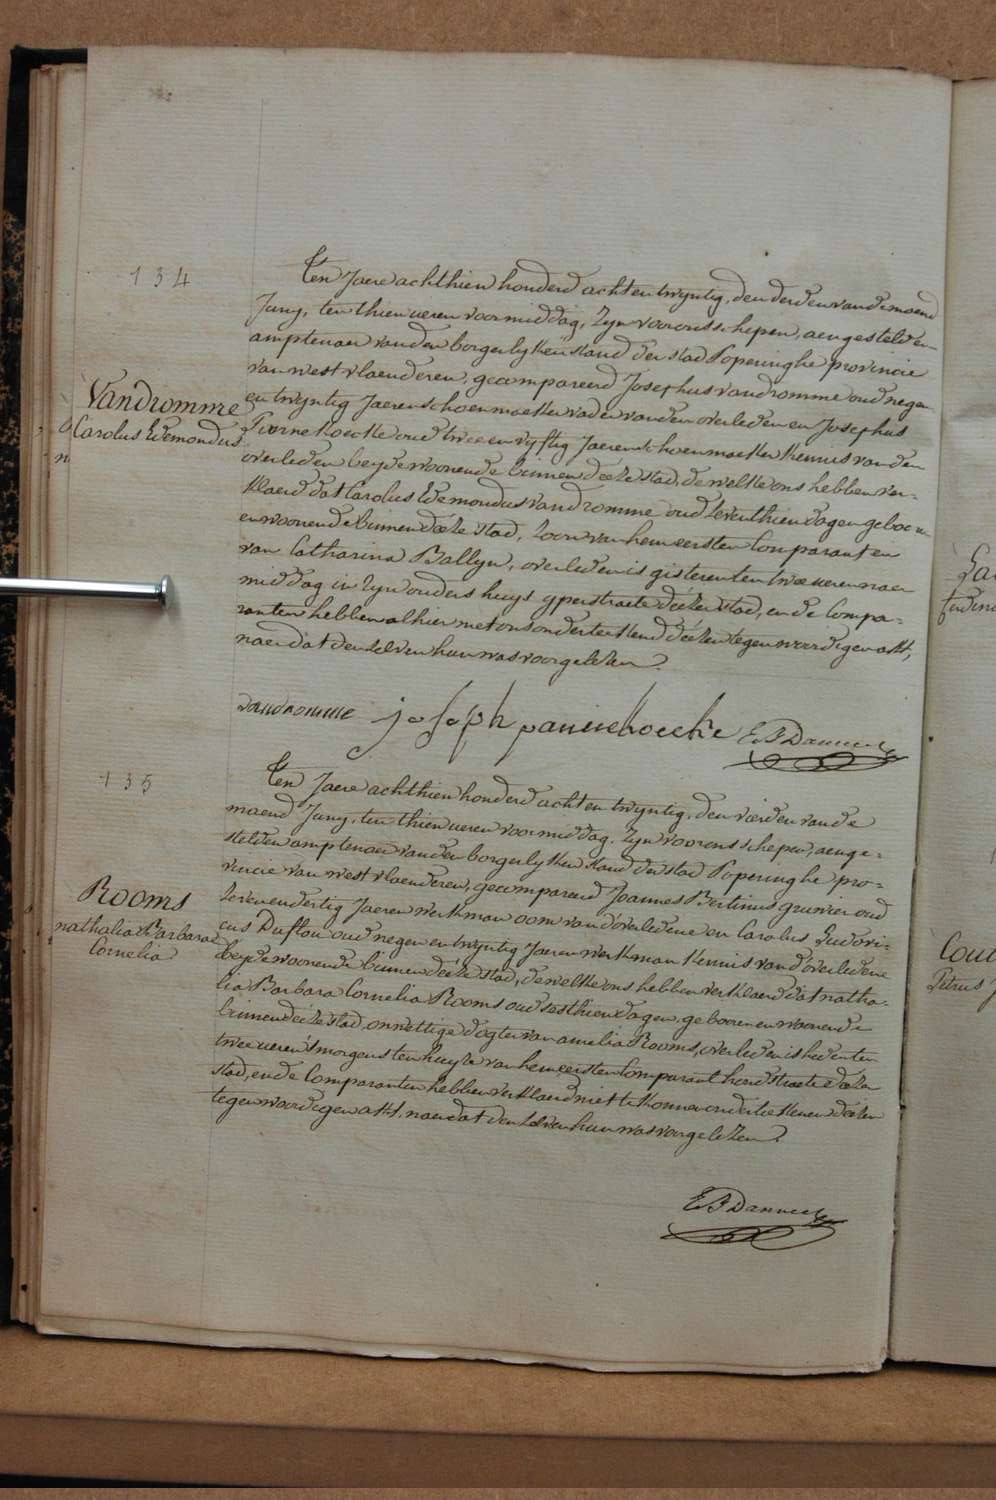 134
Vandromme
Carolus Edemondus
Ten Jaere achthien honderd acht en twyntig, den derden van de maend
Juny, ten thien ueren voormiddag, Zyn voor ons schepen, aengestelden
amptenaer van den borgerlyken stand der stad Poperinghe provincie
van westvlaenderen, gecompareerd Josephus vandromme oud negen
en twyntig Jaeren schoenmaeker vader van den overleden en Josephus
oud twee en vyftig Jaeren schoenmaeker kennis van den
overleden beyde woonende binnen deéze stad, de welke ons hebben ver=
klaerd dat Carolus Edemondus vandromme oud zeventhien dagen geboren
en woonende binnen deéze stad, zoon van hem eersten Comparant en
van Catharina Ballyn, overleden is gisteren ten twee ueren naer
middag in zyn ouders huys yperstraete deézer stad, en de Compa=
ranten hebben alhier met ons onderteekend deézen tegenwoordigen akt,
naer dat den zelven hun was voorgelezen.
vandromme joseph E B Dannee
135
Rooms
nathalia Barbara
Cornelia
Ten Jaere achthien honderd acht en twyntig, den vierden van de
maend Juny, ten thien ueren voormiddag. Zyn voor ons schepen, aenge=
stelden amptenaer van den borgerlyken stand der stad Poperinghe pro=
vincie van westvlaenderen, gecompareerd Joannes Bertinus grunier oud
zeven en dertig Jaeren werkman oom van d'overledene en Carolus Ludovi=
cus Duflou oud negen en twyntig Jaeren werkman kennis van d'overledene
beyde woonende binnen deéze stad, de welke ons hebben verklaerd dat natha=
lia Barbara Cornelia Rooms oud sesthien dagen, geboren en woonende
binnen deéze stad, onwettige dogter van amelia Rooms, overleden is heden ten
twee ueren 's morgens ten huyze van hem eersten Comparant hondstraete deézer
stad, en de Comparanten hebben verklaerd niet te konnen onderteekenen deézen
tegenwoordegen akt, naer dat den zelven hun was voorgelezen.
E B Dannee